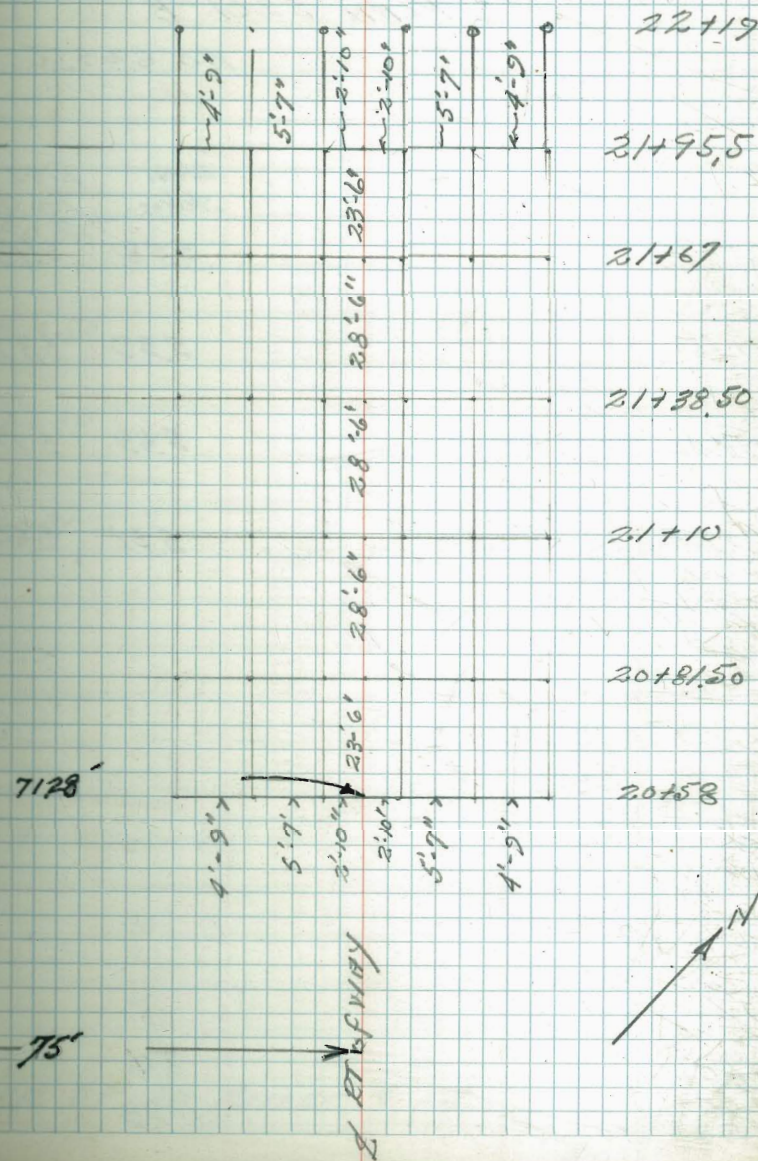 22+19
4'-9" 5'-7" 2'-10" 2'-10" 5'-7" 4'-9"
21+95.5
23'-6"
21+67
28'-6"
21+38.50
28'-6"
21+10
28'-6"
20+81.50
23'-6"
7128'
20+58
4'-9" 5'-7" 2'-10" 2'-10" 5'-7" 4'-9"
N
75'
RT of WAY